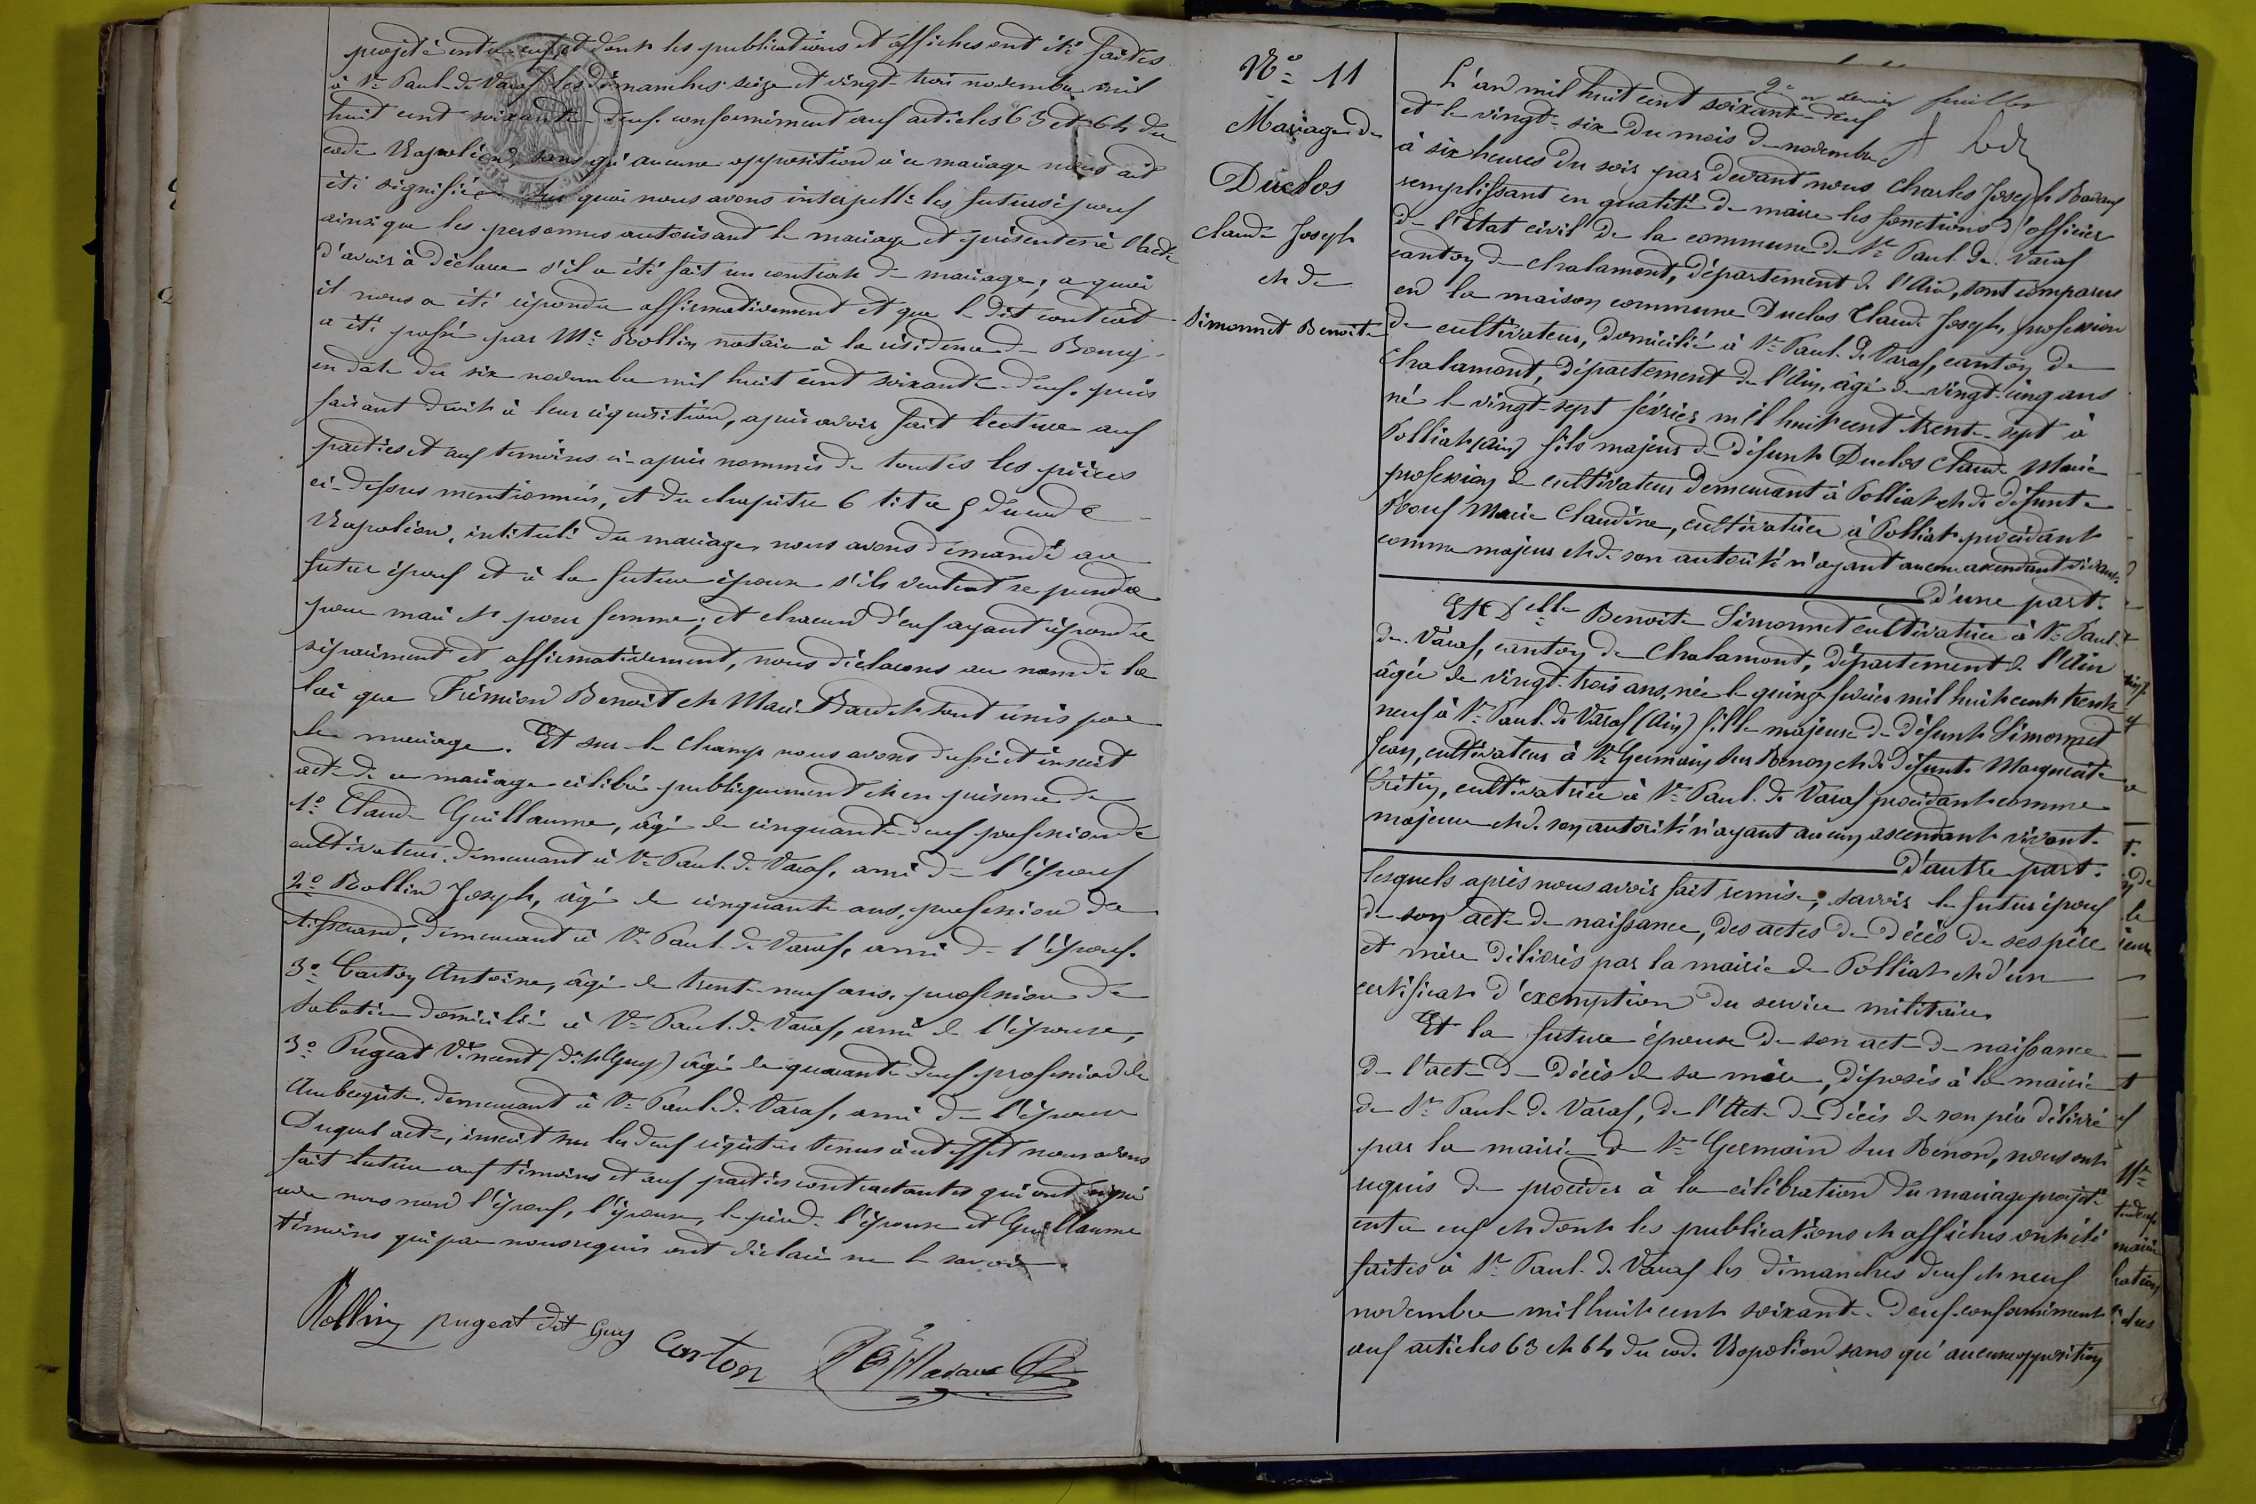 projeté entre eux et dont les publications et affiches ont été faites
à St Paul-de Varax les dimanches seize et vingt-trois novembre mil
huit cent soixante-deux conformément aux articles 63 et 64 du
code Napoléon, sans qu'aucune opposition à ce mariage nous ait
été signifiée. Sur quoi nous avons interpellé les futurs époux
ainsi que les personnes autorisant le mariage et présentes à l'acte
d'avoir à déclarer s'il a été fait un contrat de mariage; a quoi
il nous a été répondu affirmativement et que le dit contrat
a été passé par Me Rollin notaire à la résidence de Bourg
en date du six novembre mil huit cent soixante-deux. puis
faisant droit à leur réquisition, après avoir fait lecture aux
parties et aux témoins ci-après nommés de toutes les pièces
ci-dessus mentionnées, et du chapitre 6 titre 5 du code
Napoléon, intitulé du mariage, nous avons demandé au
futur époux et à la future épouse s'ils veulent se prendre
pour mari et pour femme; et chacun d'eux ayant répondu
séparément et affirmativement, nous déclarons au nom de la
loi que Frémion Benoit et Marie Bardet sont unis par
le mariage. Et sur-le champ nous avons dressé et inscrit
acte de ce mariage célébré publiquement et en présence de
1o Claude Guillaume, âgé de cinquante-deux profession de
cultivateur, demeurant à St Paul-de Varax, ami de l'époux
2o Rollin Joseph, âgé de cinquante ans, profession de
tisserand, demeurant à St Paul-de Varax, ami de l'époux.
3o Carton Antoine, âgé de trente-neuf ans, profession de
Sabotier domicilié à St Paul-de Varax, ami de l'épouse,
3o Pugeat Vincent (dit Guy) âgé de quarante deux profession de
Aubergiste, demeurant à St Paul-de Varax, ami de l'épouse
Duquel acte, inscrit sur les deux registres tenus à cet effet nous avons
fait lecture aux témoins et aux parties contractantes qui ont signé
avec nous non l'époux, l'épouse, le père de l'épouse et Guillaume
témoins qui par nous requis ont déclaré ne le savoir.
Rollin pugeat dit Guy Carton
No 11
Mariage de
Duclos
Claude Joseph
et de
Simonnet Benoite
2e et dernier feuillet
L'an mil huit cent soixante-deux
et le vingt-six du mois de novembre
à six heures du soir par devant nous Charles Joseph
remplissant en qualité de maire les fonctions d'officier
de l'Etat civil de la commune de St Paul-de-Varax
canton de Chalamont, département de l'Ain, sont comparus
en la maison commune Duclos Claude Joseph, profession
de cultivateur, domicilié à St Paul-de Varax, canton de
Chalamont, département de l'Ain, âgé de vingt-cinq ans
né le vingt-sept février mil huit cent trente-sept à
Polliat (Ain) fils majeur de défunt Duclos Claude Marie
profession de cultivateur demeurant à Polliat et de défunte
Marie Claudine, cultivatrice à Polliat procédant
comme majeur et de son autorité n'ayant aucun ascendant vivant
d'une part.
Et Delle Benoite Simonnet cultivatrice à St Paul-
de-Varax, canton de Chalamont, département de l'Ain
âgée de vingt-trois ans, née le quinze février mil huit cent trente
neuf à St Paul-de Varax (Ain) fille majeure de défunt Simonnet
Jean, cultivateur à St Germain sur Renon et de défunte Marguerite
cultivatrice à St Paul-de Varax procédant comme
majeure et de son autorité n'ayant aucun ascendant vivant.
d'autre part.
lesquels après nous avoir fait remise, savoir le futur époux
de son acte de naissance, des actes de décès de ses père
et mère délivrés par la mairie de Polliat et d'un
certificat d'exemption du service militaire
Et la future épouse de son acte de naissance
de l'acte de décès de sa mère, déposés à la mairie
de St Paul-de Varax, de l'acte de décès de son père délivré
par la mairie de St Germain sur Renon, nous ont
requis de procéder à la célébration du mariage projeté
entre eux et dont les publications et affiches ont été
faites à St Paul-de Varax les dimanches deux et neuf
novembre mil huit cent soixante-deux conformément
aux articles 63 et 64 du code Napoléon sans qu'aucune opposition